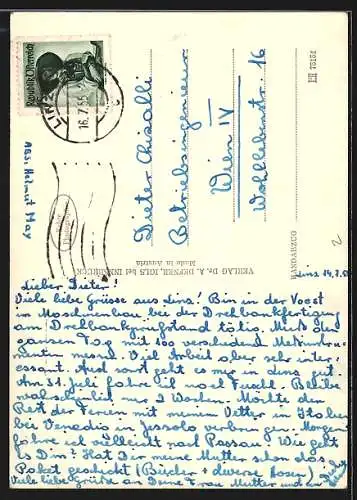 Republik Österreich
LINZ
16.7.56
Abs: Helmut May
Dieter Chisalli
Betriebsingenieur
Wien IV
Wohllebenstr. 16
VERLAG Dr. A. DEFNER, IGLS bei INNSBRUCK
Made in Austria
HANDABZUG
2
Linz 14.7.
Lieber Dieter!
Viele liebe Grüsse aus Linz! Bin in der Voest
in Maschinenbau bei der Drehbankfertigung
am Drehbankprüfstand tätig. Muß den
ganzen Tag mit 100 verschiedenen Meßinstru-
menten messen. Viel Arbeit aber sehr inter-
essant. Auch sonst geht es mir in Linz gut.
Am 31. Juli fahre ich nach Fuschl. Bleibe
wahrscheinlich nur 2 Wochen. Möchte den
Rest der Ferien mit meinem Vetter in Italien
bei Venedig in Jessolo verbringen. Morgen
fahre ich vielleicht nach Passau. Wie geht
es Dir? Hat Dir meine Mutter schon das
Paket geschickt (Bücher + diverse Hosen)
Viele liebe Grüße an Deine Frau Mutter und